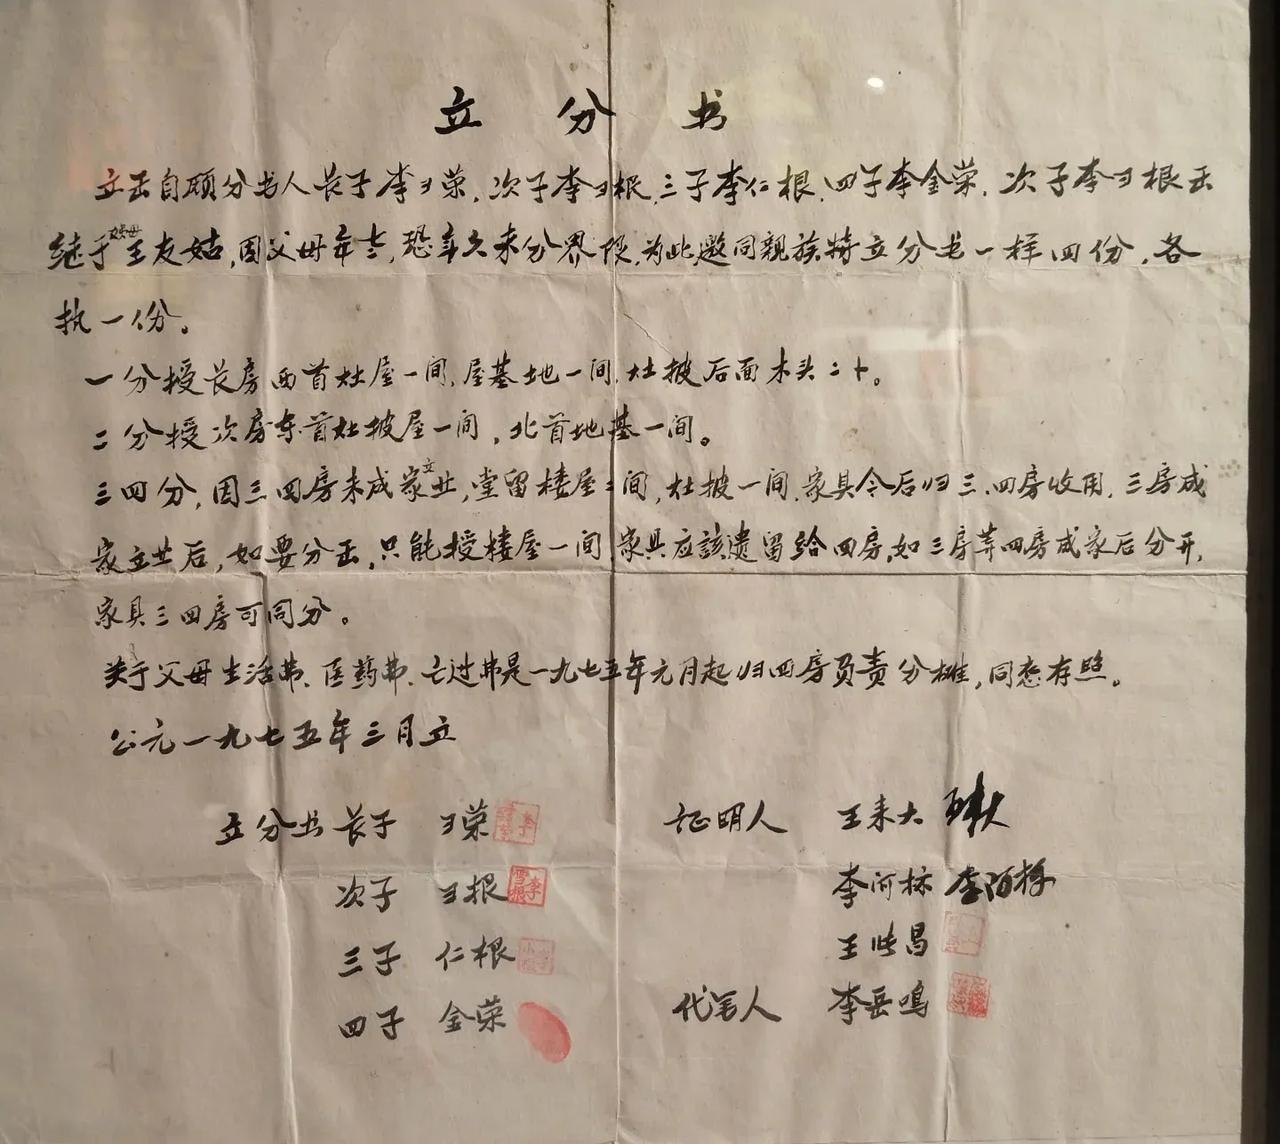 立分书
立出自愿分书人长子李彐荣，次子李彐根，三子李仁根，四子李金荣，次子李彐根出
继于王友姑，因父母年老，恐年久未分界限，为此邀同亲族特立分书一样四份，各
执一份。
一分授长房西首灶屋一间，屋基地一间，灶披后面木头二个。
二分授次房东首灶披屋一间，北首地基一间。
三四分，因三四房未成家立业，堂留楼屋二间，灶披一间，家具今后归三、四房收用，三房成
家立业后，如要分出，只能授楼屋一间，家具应該遗留给四房，如三房等四房成家后分开，
家具三四房可同分。
关于父母生活费、医药费、亡过费是一九七五年元月起归四房负责分摊，同悉存照。
公元一九七五年三月立
立分书 长子 彐荣 证明人 王来大
次子 彐根 李雪根 李阿标 李阿标
三子 仁根 王 昌
四子 金荣 代笔人 李岳鸣